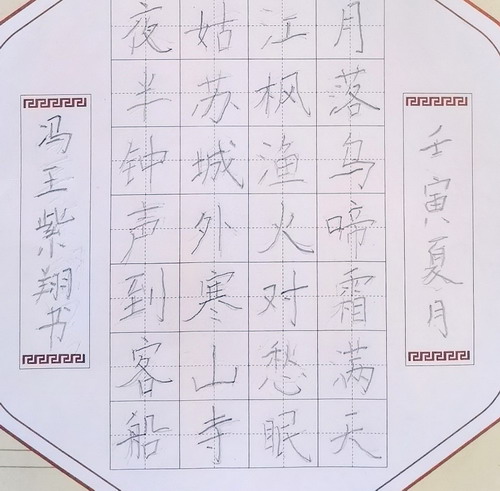 壬寅夏月
月落乌啼霜满天
江枫渔火对愁眠
姑苏城外寒山寺
夜半钟声到客船
冯王紫翔书